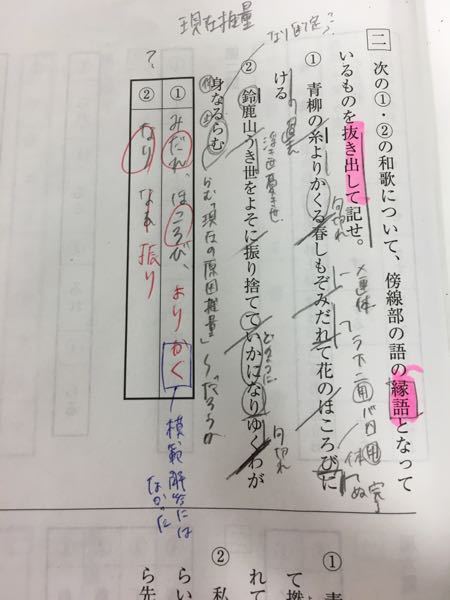 現在推量
二 次の①・②の和歌について、傍線部の語の縁語となって
いるものを抜き出して記せ。
① 青柳の糸よりかくる春しもぞみだれて花のほころびに
ける
② 鈴鹿山うき世をよそに振り捨てていかになりゆくわが
身なるらむ
浮き世 憂き世
句切れ
どのように
句切れ
らむ→現在の原因推量 ～だろうか
① みだれ、ほころび、よりかく
② なり なる 振り
?
模範解答には
なかった
①
②